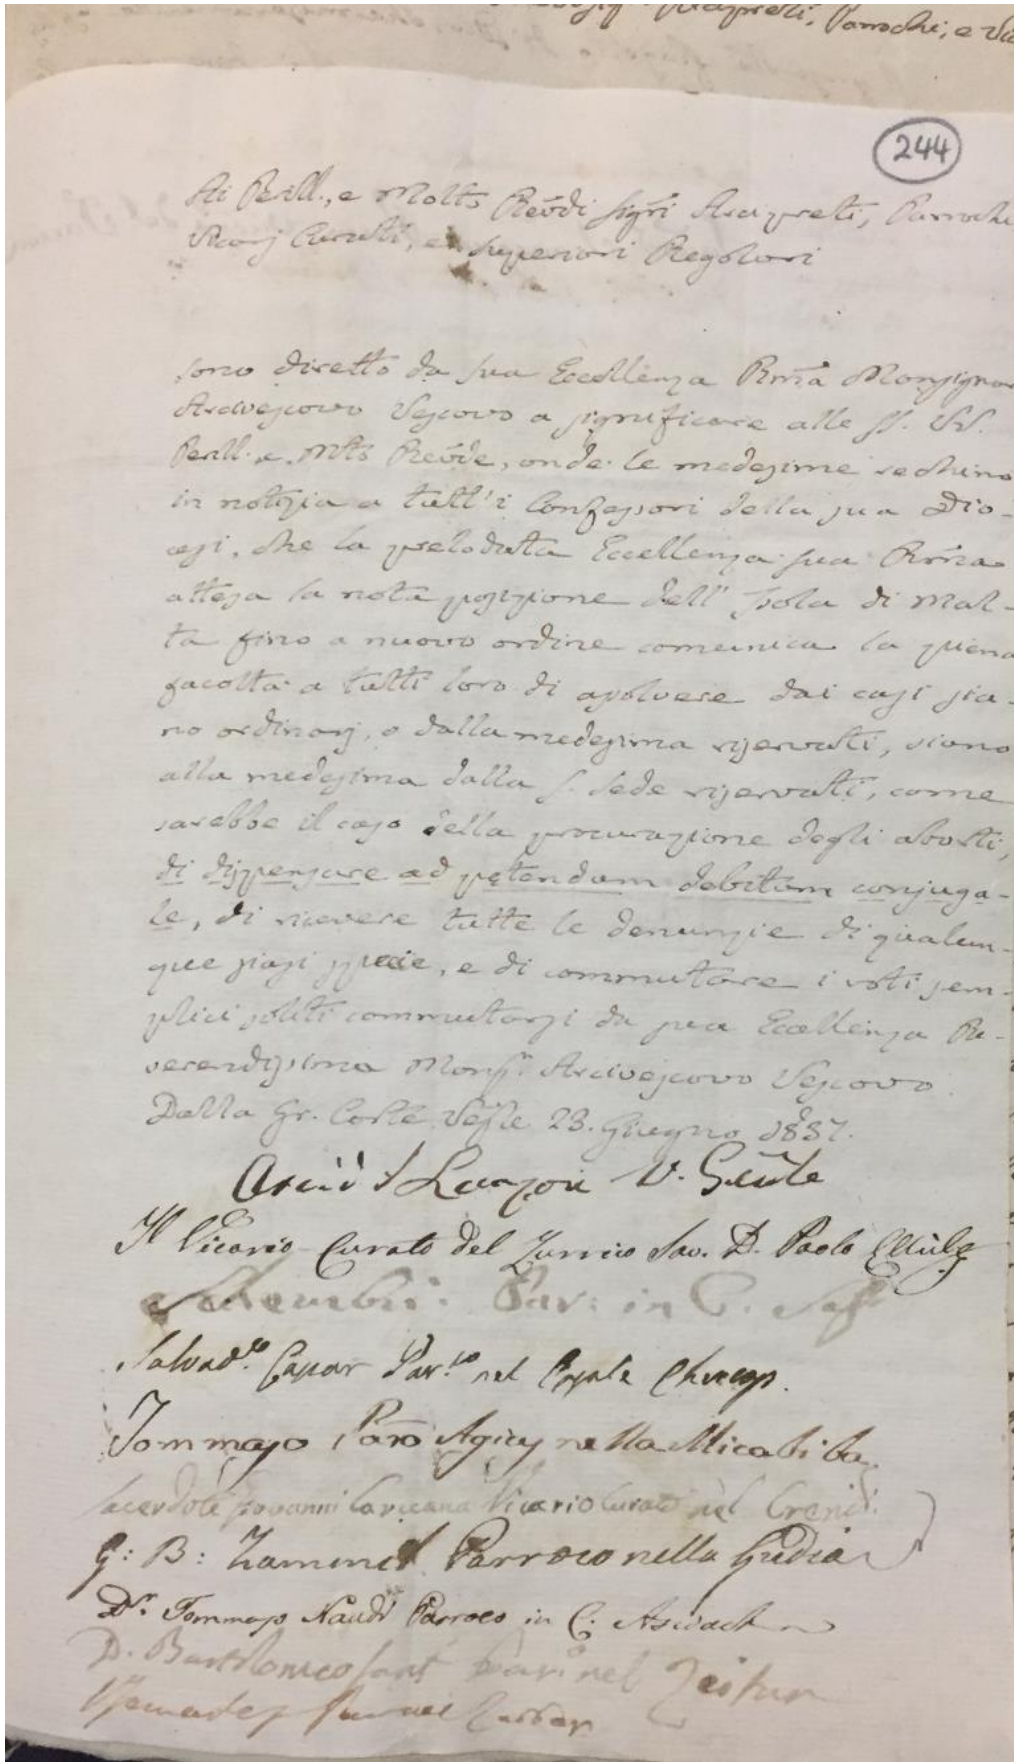 Parrochi, e
244
Ai Perill., e Molto Revdi Sigri Arcipreti, Parrochi
Vicarj Curati, e Superiori Regolari
Sono diretto da Sua Eccellenza Rma Monsignor
Arcivescovo Vescovo a significare alle SS. VV.
Perill. e Mto Revde, onde le medesime rechino
in notizia a tutt'i Confessori della sua Dio-
cesi, che la prelodata Eccellenza Sua Rma
attesa la nota posizione dell' Isola di Mal-
ta fino a nuovo ordine comunica la piena
facoltà a tutti loro di assolvere dai casi sia-
no ordinarj, o dalla medesima riservati, siano
alla medesima dalla S. Sede riservati, come
sarebbe il caso della procurazione degli aborti,
di dispensare ad petendum debitum conjuga-
le, di ricevere tutte le denunzie di qualun-
que siasi specie, e di commutare i voti sem-
plici soliti commutarsi da sua Eccellenza Re-
verendissima Monsr. Arcivescovo Vescovo.
Dalla Gr. Corte Vesle 23. Giugno 1837.
V. Genle
Il Vicario Curato del Zurrico Sac. D. Paolo
Par: in C. Safi
Salvadre Par.co nel Casale Chircop.
Tommaso Paro Agius nella Micabiba
Sacerdote Giovanni Vicario Curato nel Crendi
G: B: Zammit Parroco nella Gudia
Dr. Tommaso Naudi Parroco in C. Asciach
D. Bartolomeo Sant Par nel Zeitun